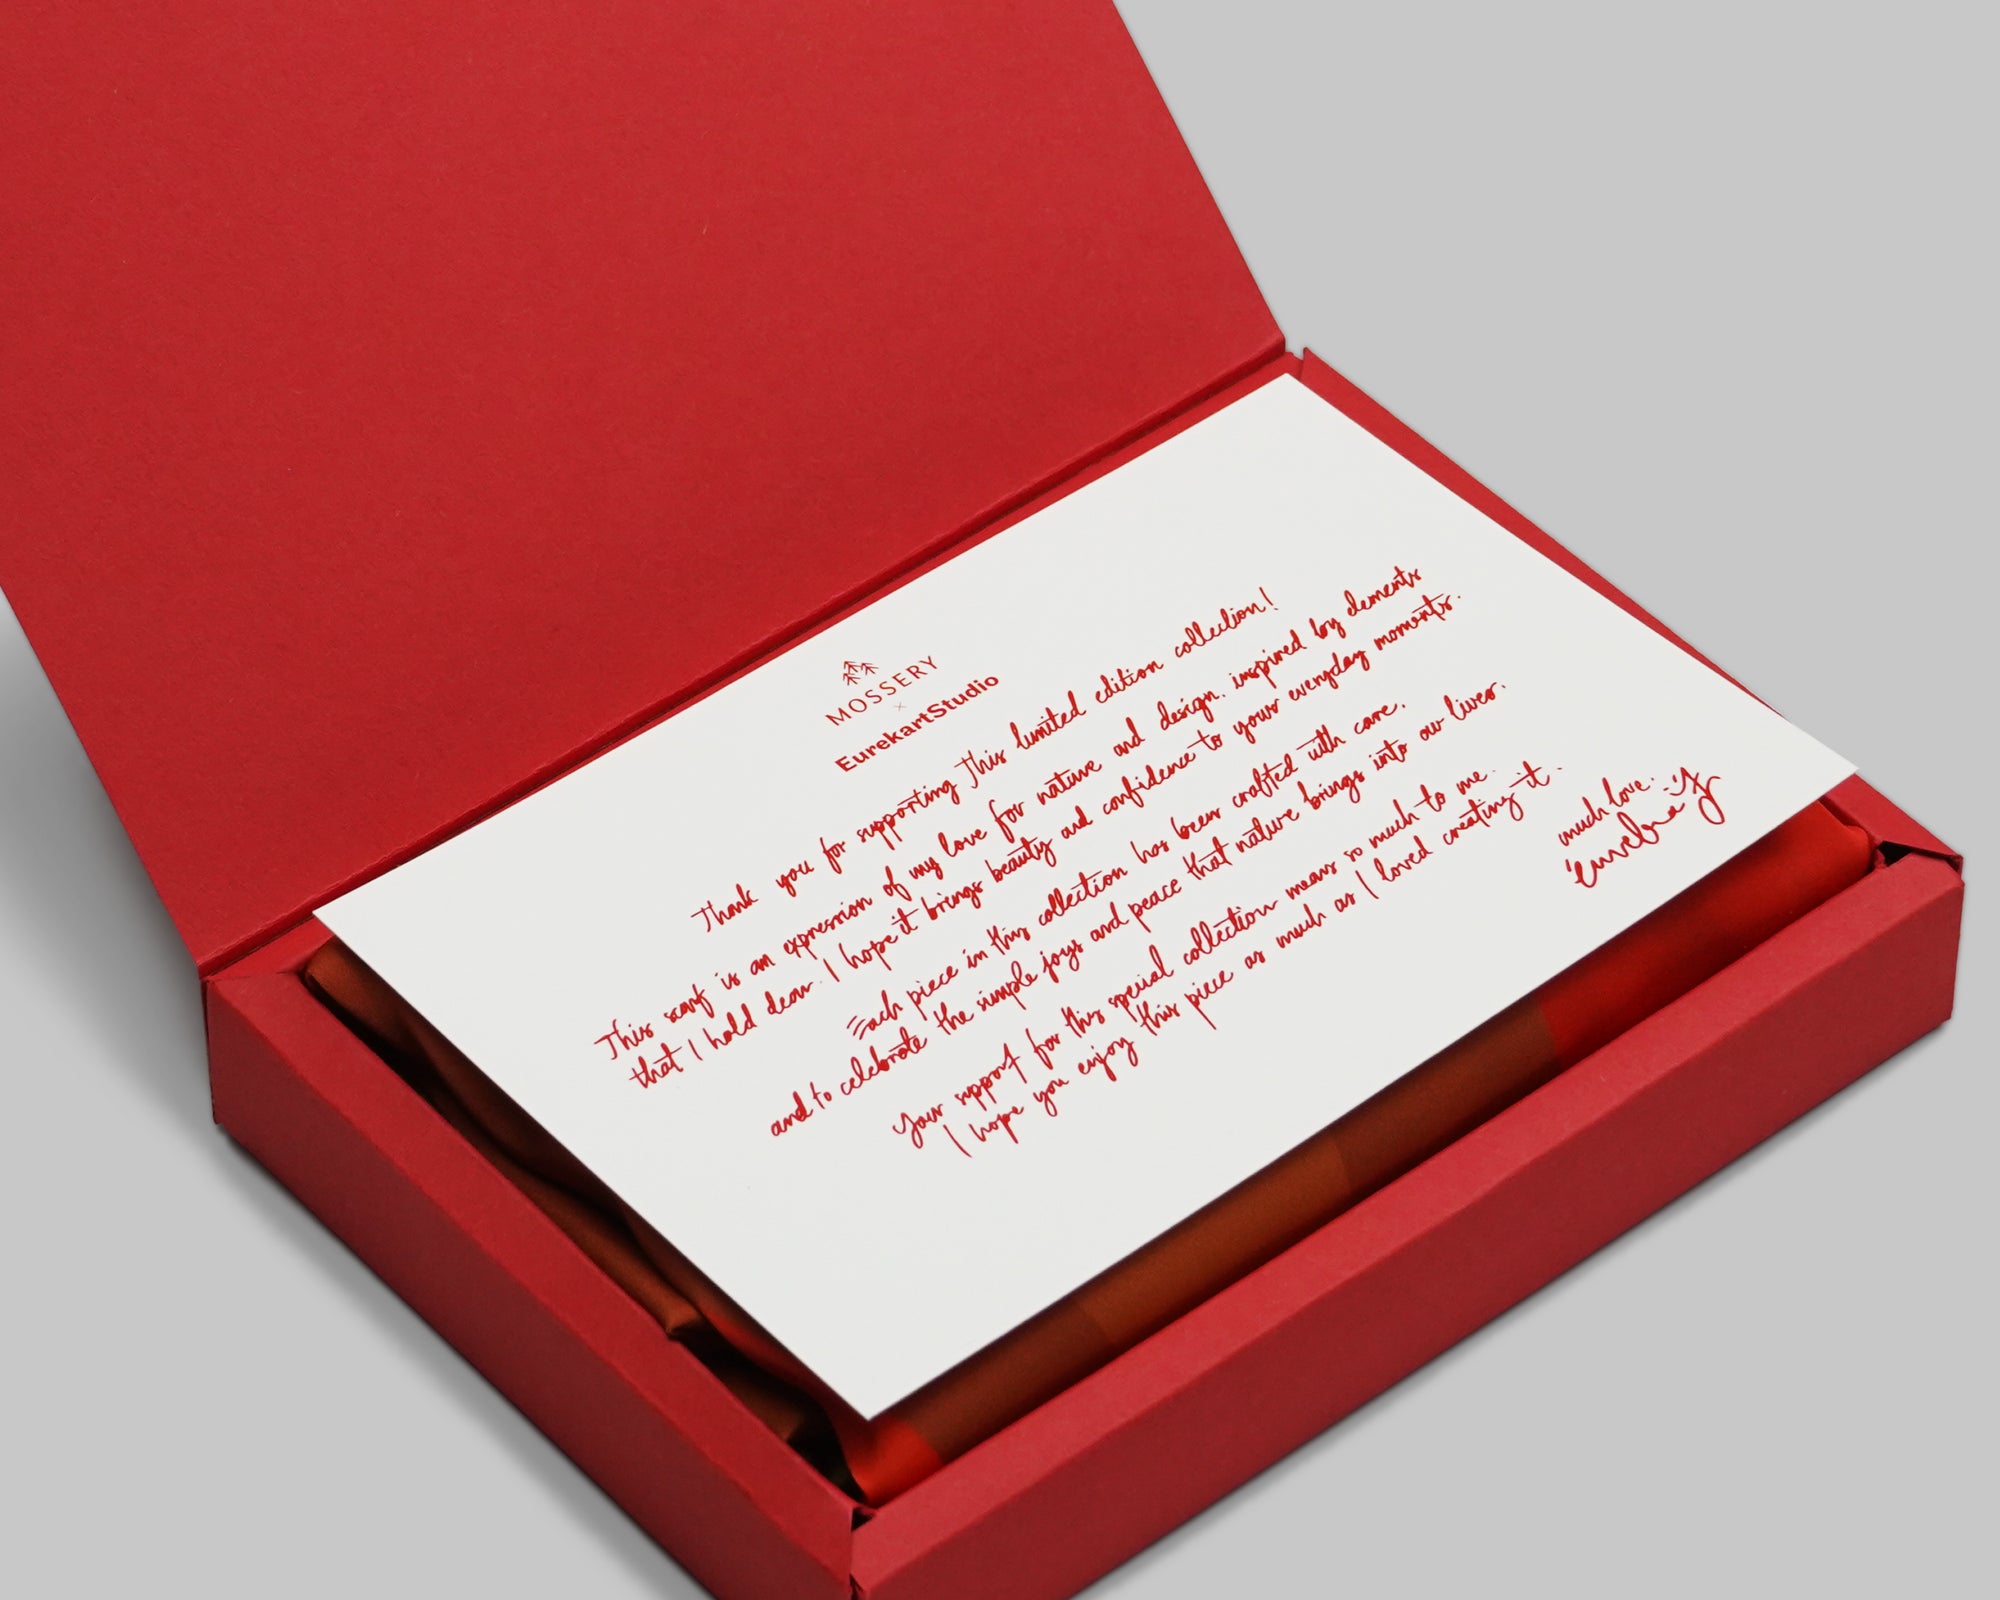 MOSSERY
×
EurekartStudio
Thank you for supporting this limited edition collection!
This scarf is an expression of my love for nature and design, inspired by elements
that I hold dear. I hope it brings beauty and confidence to your everyday moments.
Each piece in this collection has been crafted with care,
and to celebrate the simple joys and peace that nature brings into our lives.
Your support for this special collection means so much to me.
I hope you enjoy this piece as much as I loved creating it.
much love.